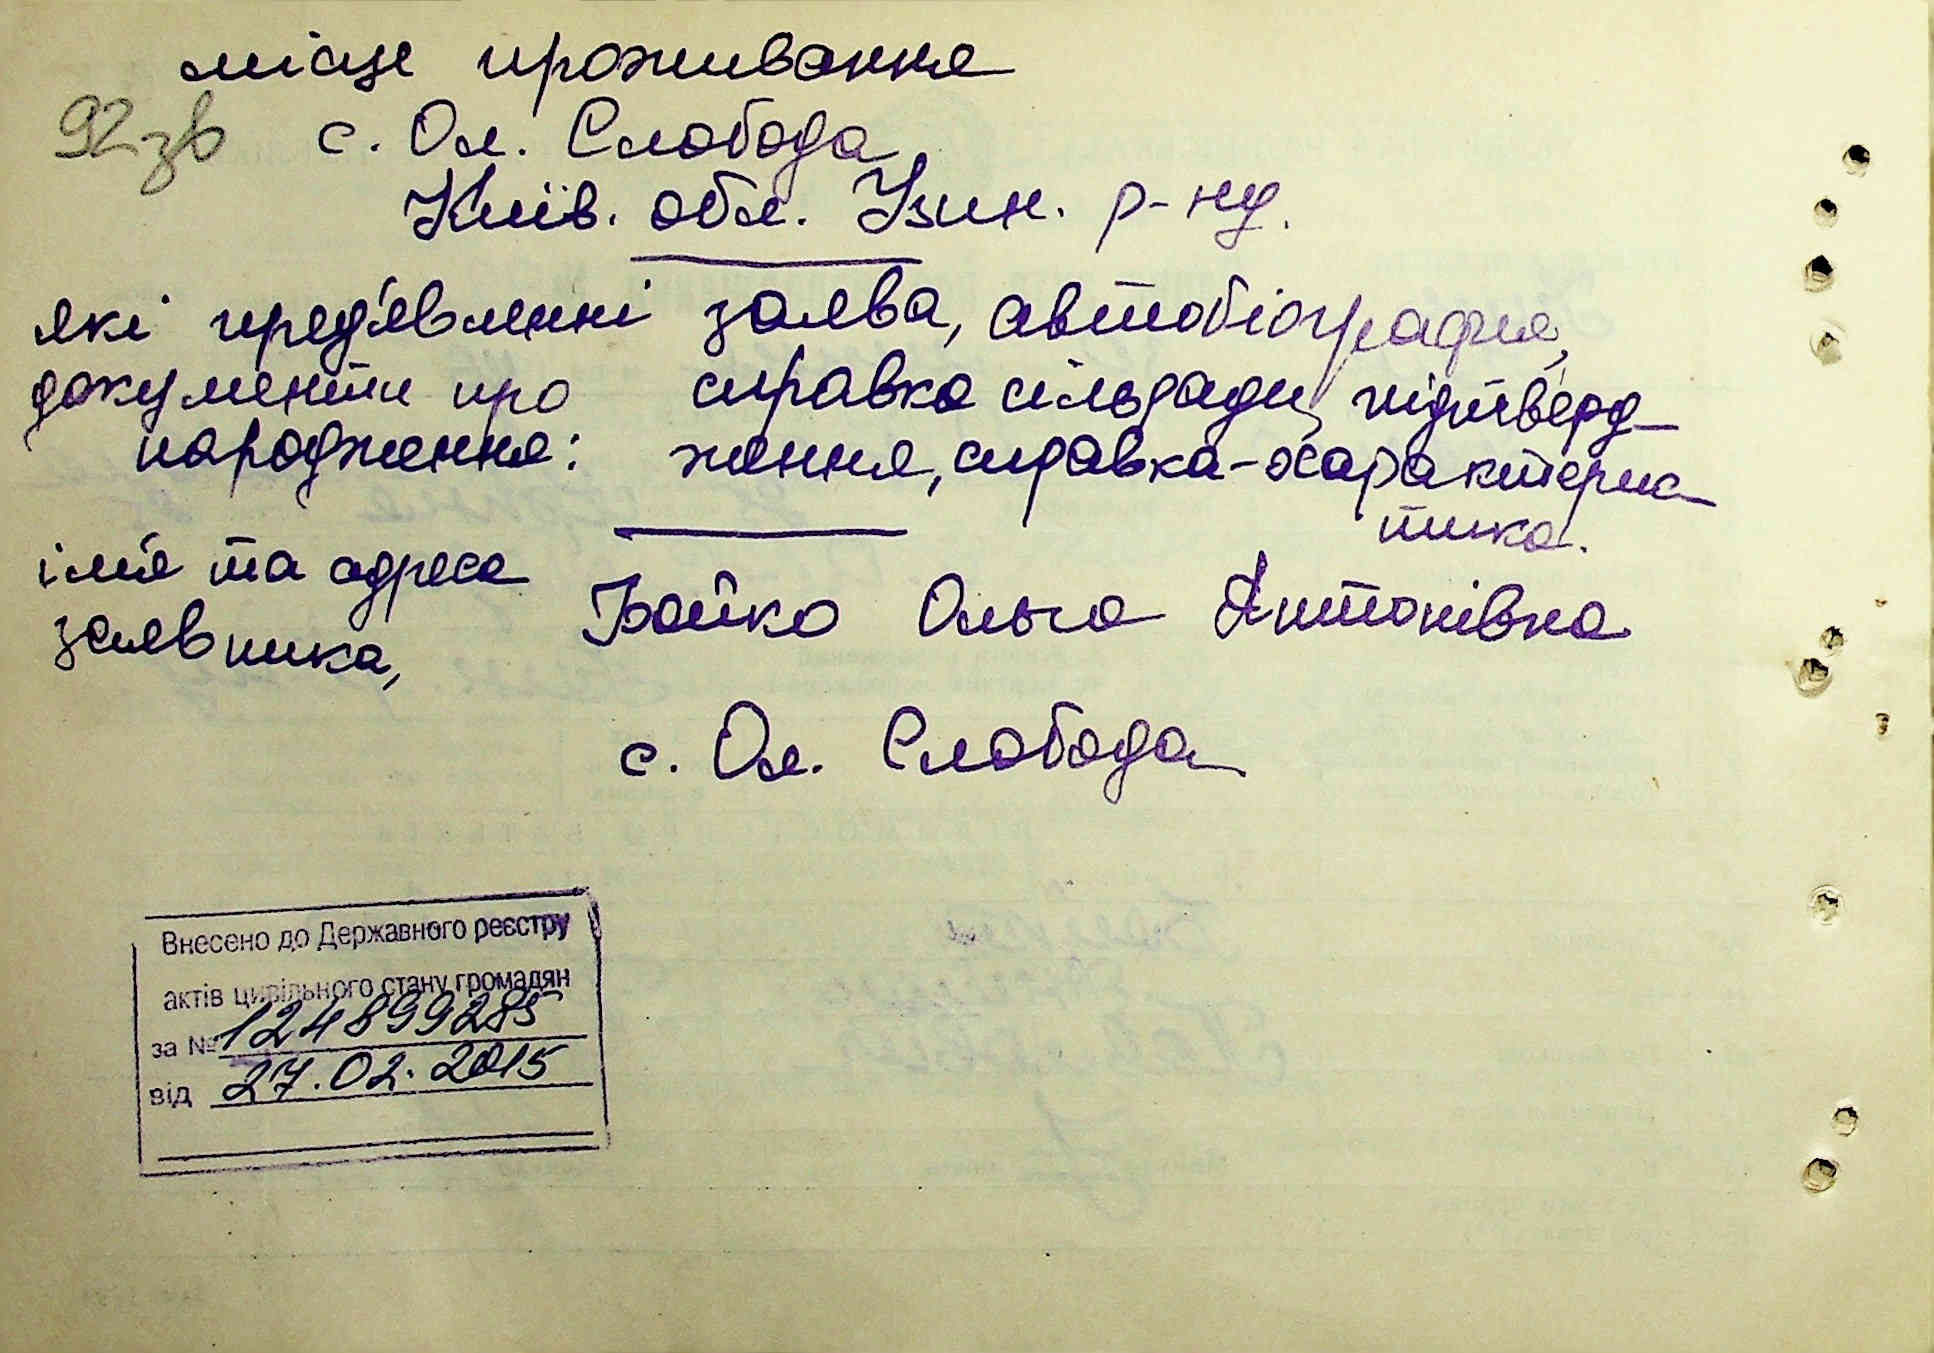 місце проживання
92зв с. Ол. Слобода
Київ. обл. Узин. р-ну.
які пред'явленні заява, автобіографія,
документи про справка сільради, підтверд-
народження: ження, справка-характерис
тика.
ім'я та адреса
заявника, Бойко Ольга Антонівна
с. Ол. Слобода
Внесено до Державного реєстру
актів цивільного стану громадян
за № 124899285
від 27.02.2015